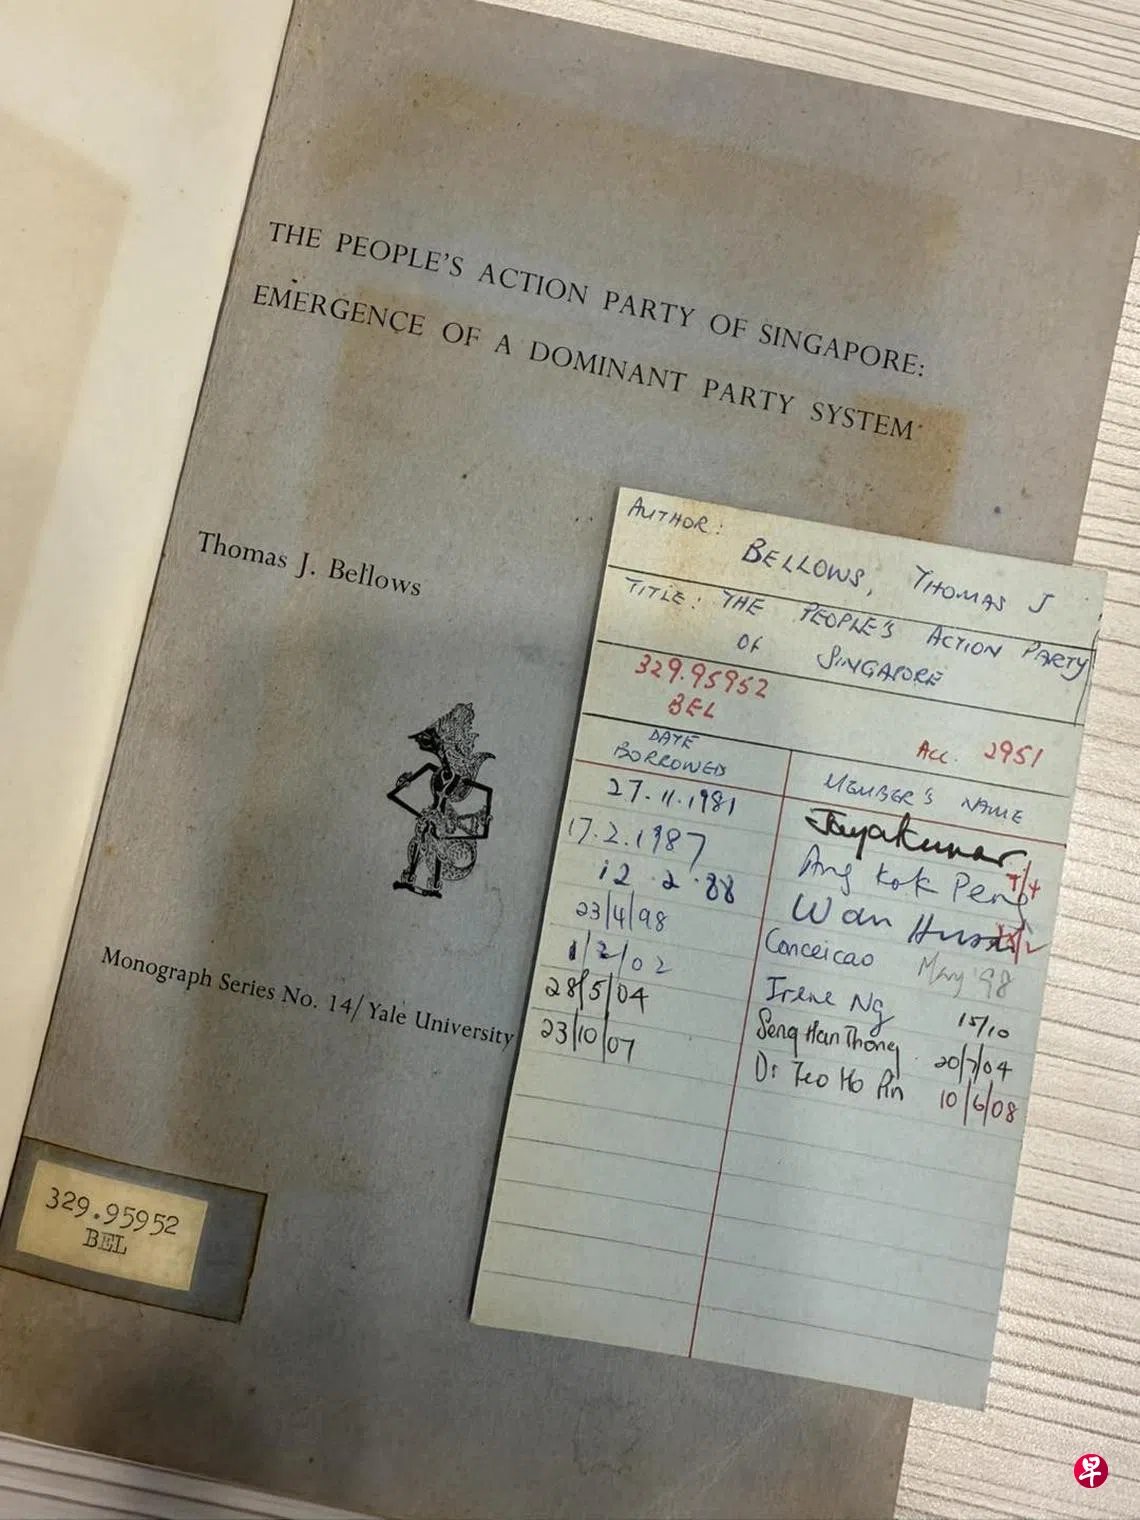 THE PEOPLE'S ACTION PARTY OF SINGAPORE:
EMERGENCE OF A DOMINANT PARTY SYSTEM
Thomas J. Bellows
Monograph Series No. 14/Yale University
329.95952
BEL
AUTHOR:
BELLOWS, THOMAS J
TITLE: THE PEOPLE'S ACTION PARTY
OF SINGAPORE
329.95952
BEL
ACC. 2951
DATE
BORROWED
MEMBER'S NAME
27.11.1981 Jayakumar
17.2.1987 Ang Kok Peng 7/4
12.2.88 Wan
23/4/98 Conceicao May '98
1/2/02 Irene Ng 15/10
28/5/04 Seng Han Thong 20/7/04
23/10/07 Dr Teo Ho Pin 10/6/08
早